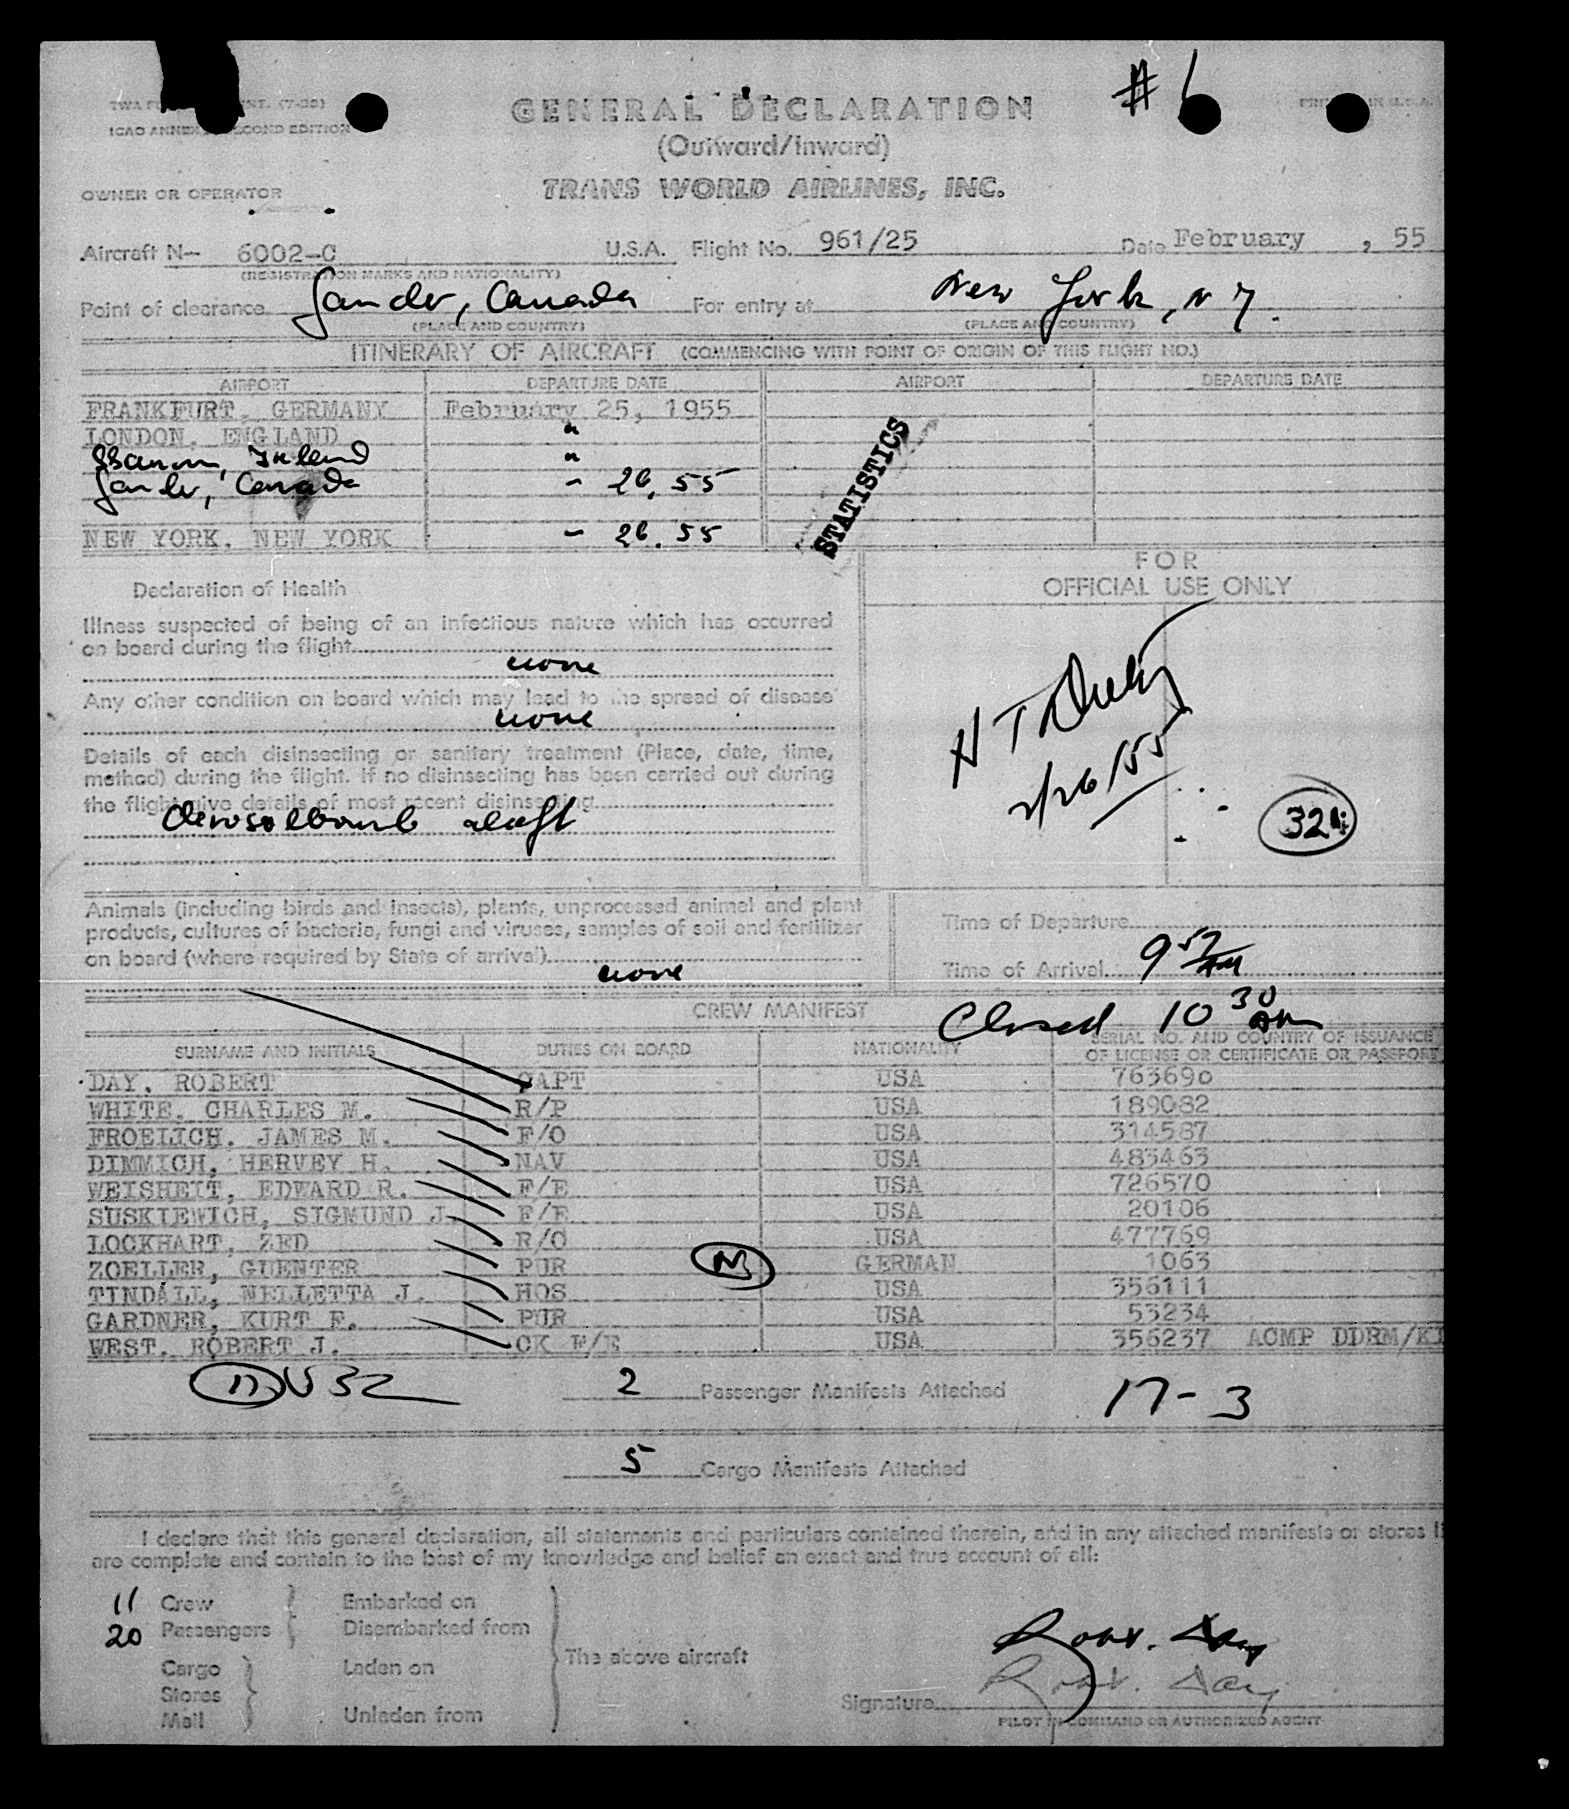 # 6
GENERAL DECLARATION
(Outward/Inward)
ICAO ANNEX SECOND EDITION
OWNER OR OPERATOR TRANS WORLD AIRLINES, INC.
Aircraft N— 6002-C U.S.A. Flight No. 961/25 Date February , 55
(REGISTRATION MARKS AND NATIONALITY)
Point of clearance Gander, Canada For entry at New York, N Y.
(PLACE AND COUNTRY) (PLACE AND COUNTRY)
ITINERARY OF AIRCRAFT (COMMENCING WITH POINT OF ORIGIN OF THIS FLIGHT NO.)
AIRPORT DEPARTURE DATE AIRPORT DEPARTURE DATE
FRANKFURT, GERMANY February 25, 1955
LONDON, ENGLAND "
Shannon, Ireland "
Gander, Canada - 26, 55
NEW YORK, NEW YORK - 26, 55
STATISTICS
FOR
OFFICIAL USE ONLY
Declaration of Health
Illness suspected of being of an infectious nature which has occurred
on board during the flight
none
Any other condition on board which may lead to the spread of disease
none
Details of each disinsecting or sanitary treatment (Place, date, time,
method) during the flight. If no disinsecting has been carried out during
the flight give details of most recent disinsecting
aloft
2/26/55
324
Animals (including birds and insects), plants, unprocessed animal and plant
products, cultures of bacteria, fungi and viruses, samples of soil and fertilizer
on board (where required by State of arrival)
none
Time of Departure
Time of Arrival 9 57 AM
Closed 10 30 AM
CREW MANIFEST
SURNAME AND INITIALS DUTIES ON BOARD NATIONALITY SERIAL NO. AND COUNTRY OF ISSUANCE OF LICENSE OR CERTIFICATE OR PASSPORT
DAY, ROBERT CAPT USA 763690
WHITE, CHARLES M. R/P USA 189082
FROELICH, JAMES M. F/O USA 314587
DIMMICH, HERVEY H. NAV USA 483463
WEISHEIT, EDWARD R. F/E USA 726570
SUSKIEWICH, SIGMUND J. F/E USA 20106
LOCKHART, ZED R/O USA 477769
ZOELLER, GUENTER PUR GERMAN 1063
TINDALL, NELLETTA J. HOS USA 356111
GARDNER, KURT F. PUR USA 53234
WEST, ROBERT J. CK F/E USA 356237 ACMP DDRM/KI
2 Passenger Manifests Attached 17-3
5 Cargo Manifests Attached
I declare that this general declaration, all statements and particulars contained therein, and in any attached manifests or stores li
are complete and contain to the best of my knowledge and belief an exact and true account of all:
11 Crew Embarked on
20 Passengers Disembarked from
The above aircraft
Cargo Laden on
Stores
Mail Unladen from
Robt. Day
Signature Robt. Day
PILOT IN COMMAND OR AUTHORIZED AGENT